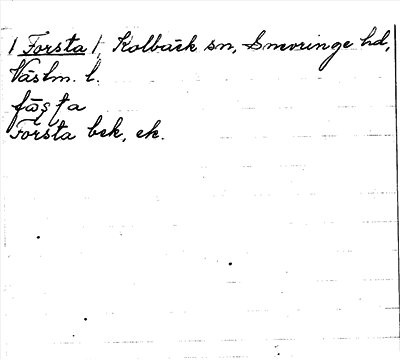 / Forsta /, Kolbäck sn, Snevringe hd,
Västm. l.
fås̩ta
Forsta bek, ek.